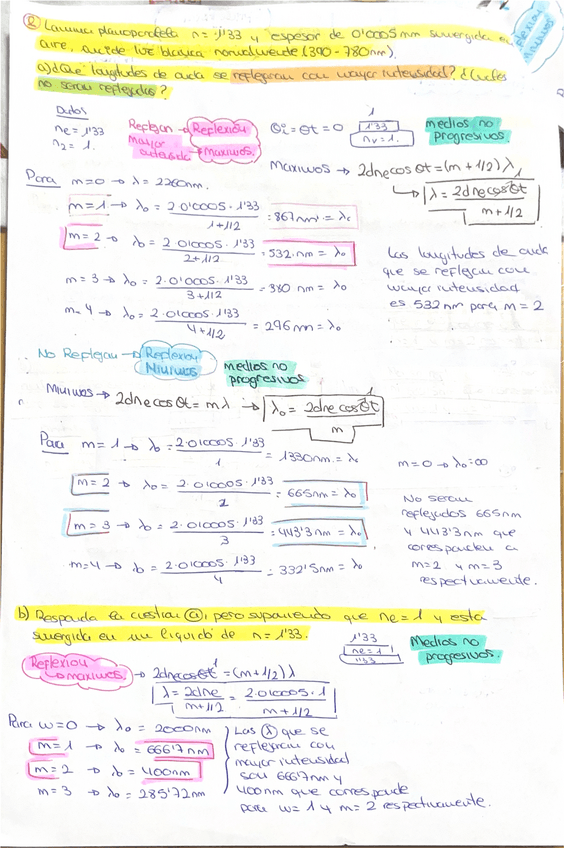 ② Lamina planoparalela n = 1'33 y espesor de 0'0005 mm sumergida en
aire, incide luz blanca normalmente (390 - 780 nm).
a) ¿Qué longitudes de onda se reflejaran con mayor intensidad? ¿Cuáles
no seran reflejadas?
Reflexion
Minimos
Datos
ne = 1'33
n2 = 1.
Reflejan → Reflexion
mayor intensidad → Maximos.
θi = θt = 0
1
1'33
nv = 1.
medios no
progresivos.
Maximos → 2dne cos θt = (m + 1/2) λ
λ = 2dne cos θt / m + 1/2
Para m=0 → λ = 2260nm.
m=1 → λ0 = 2·0'0005·1'33 / 1+1/2 = 867nm = λ0
m=2 → λ0 = 2·0'0005·1'33 / 2+1/2 = 532·nm = λ0
m=3 → λ0 = 2·0'0005·1'33 / 3+1/2 = 380 nm = λ0
m=4 → λ0 = 2·0'0005·1'33 / 4+1/2 = 296nm = λ0
Las longitudes de onda
que se reflejan con
mayor intensidad
es 532nm para m = 2
No Reflejan → Reflexion
Minimos
medios no
progresivos
Minimos → 2dne cos θt = mλ → λ0 = 2dne cos θt / m
1
Para m=1 → λ0 = 2·0'0005·1'33 / 1 = 1330nm = λ0
m=0 → λ0=∞
m=2 → λ0 = 2·0'0005·1'33 / 2 = 665nm = λ0
m=3 → λ0 = 2·0'0005·1'33 / 3 = 443'3nm = λ0
m=4 → λ0 = 2·0'0005·1'33 / 4 = 332'5nm = λ0
No seran
reflejados 665nm
y 443'3nm que
corresponden a
m=2 y m=3
respectivamente.
b) Responda la cuestion ⓐ, pero suponiendo que ne = 1 y esta
sumergida en un liquido de n = 1'33.
1'33
ne = 1
1'33
Medios no
progresivos.
Reflexion
maximos.
→ 2dne cos θt = (m + 1/2) λ
1
λ = 2dne / m+1/2 = 2·0'0005·1 / m + 1/2
Para m=0 → λ0 = 2000nm
m=1 → λ0 = 666'7nm
m=2 → λ0 = 400nm
m=3 → λ0 = 285'72nm
Las λ que se
reflejan con
mayor intensidad
son 666'7nm y
400nm que corresponde
para m=1 y m=2 respectivamente.